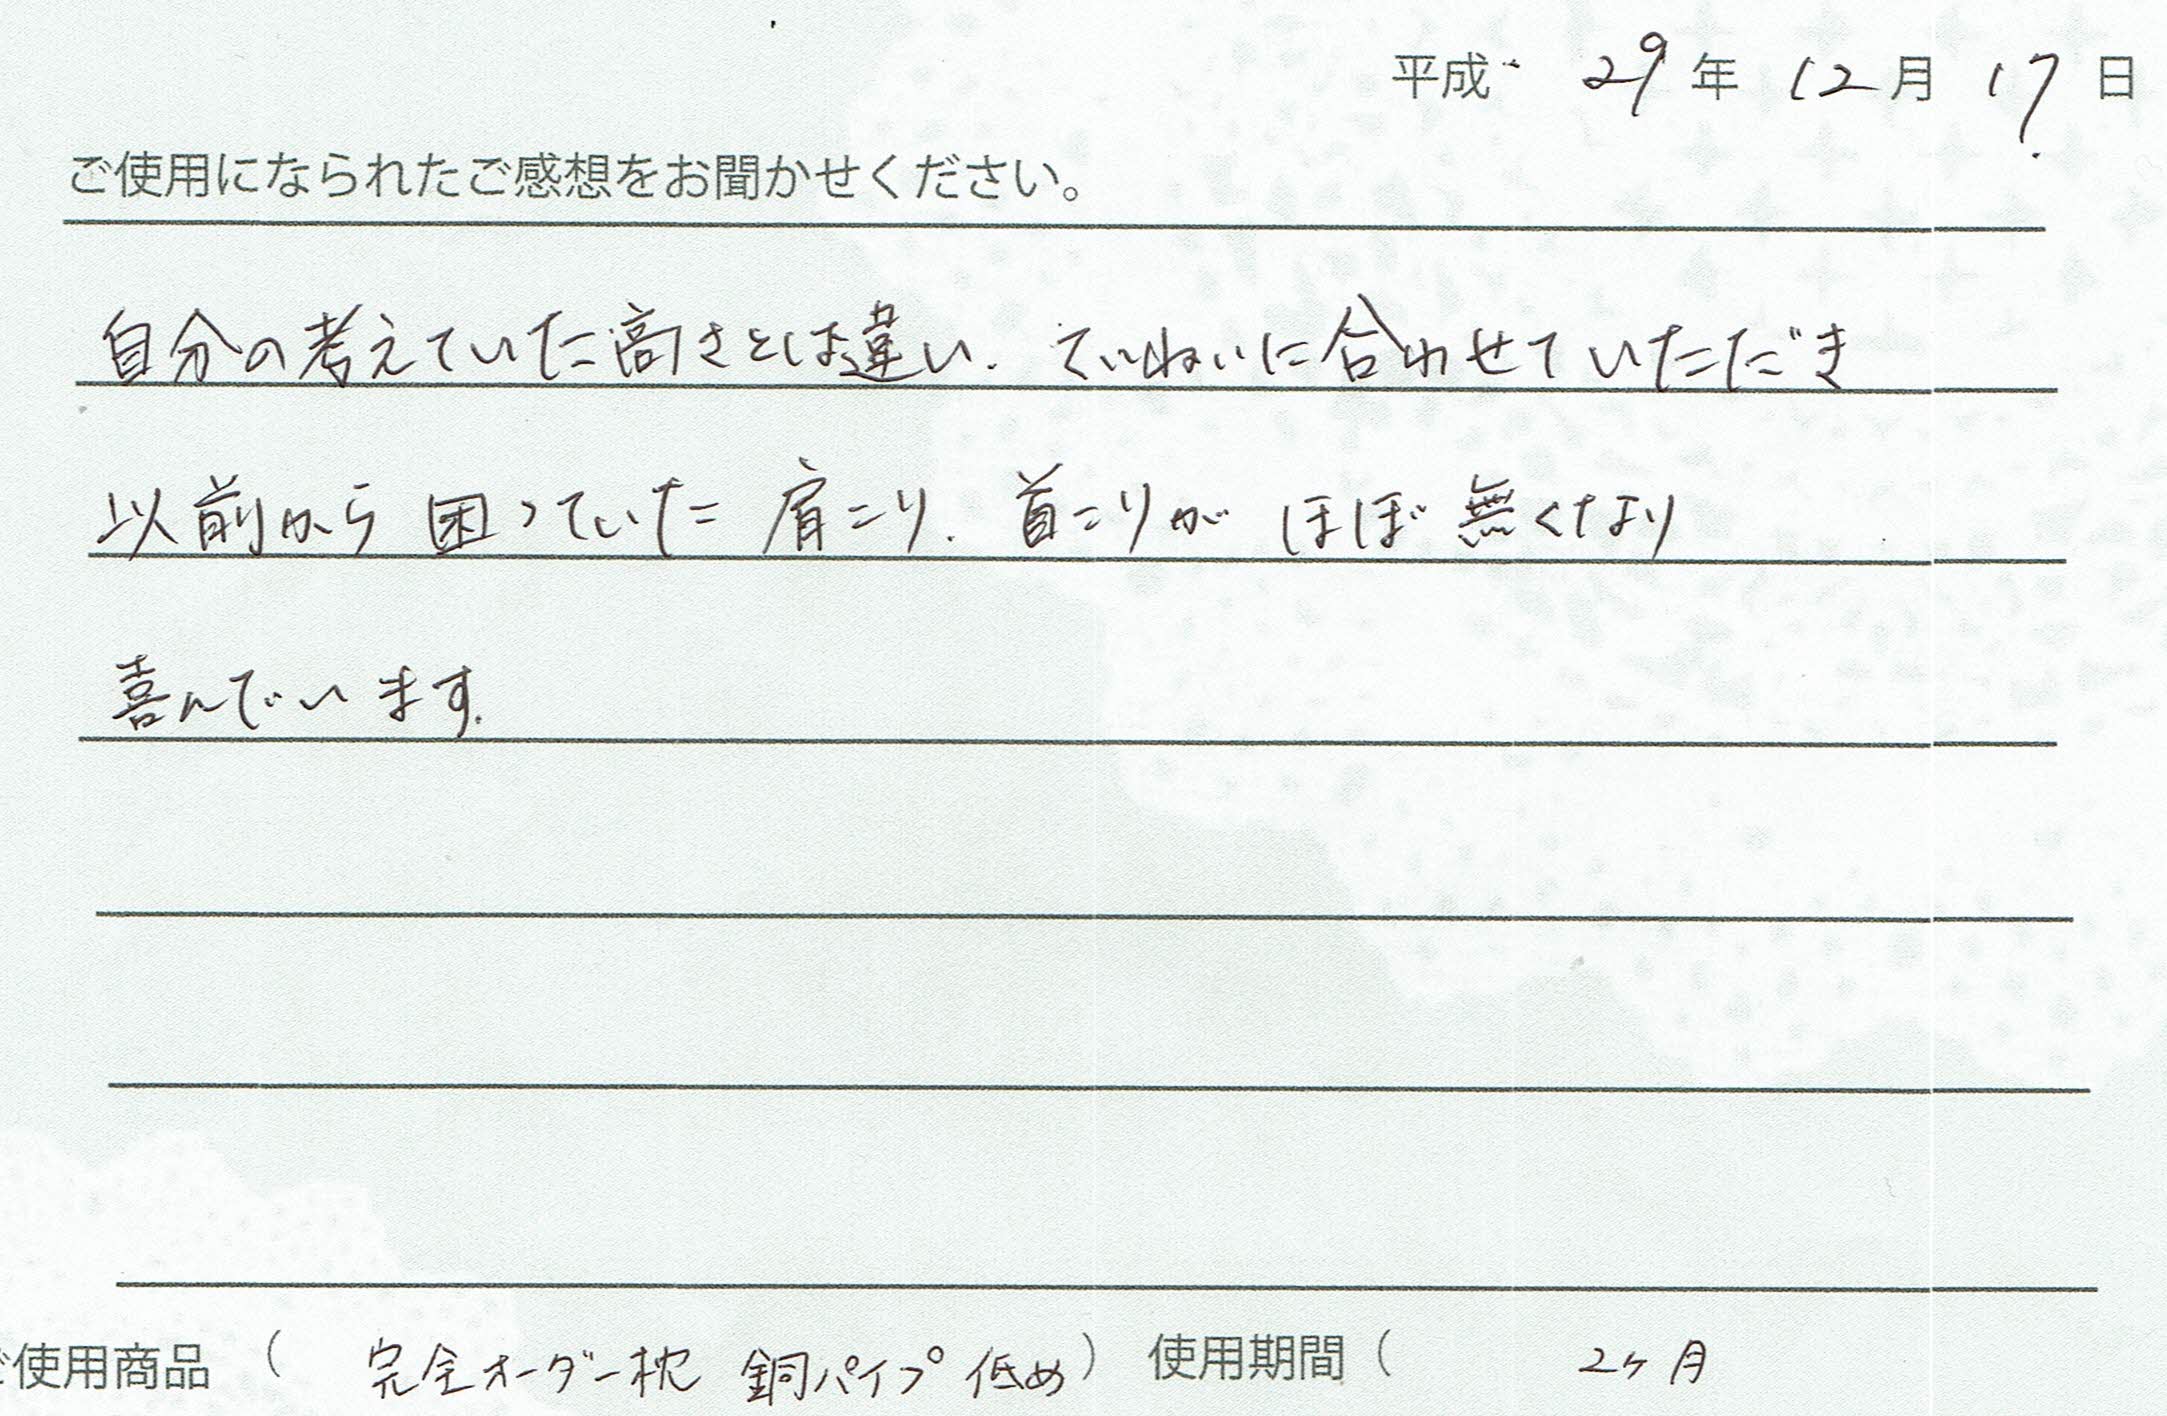 平成 29年 12月 17日
ご使用になられたご感想をお聞かせください。
自分の考えていた高さとは違い、ていねいに合わせていただき
以前から困っていた肩こり、首こりがほぼ無くなり
喜んでいます。
ご使用商品 ( 完全オーダー枕 銅パイプ 低め ) 使用期間 ( 2ヶ月